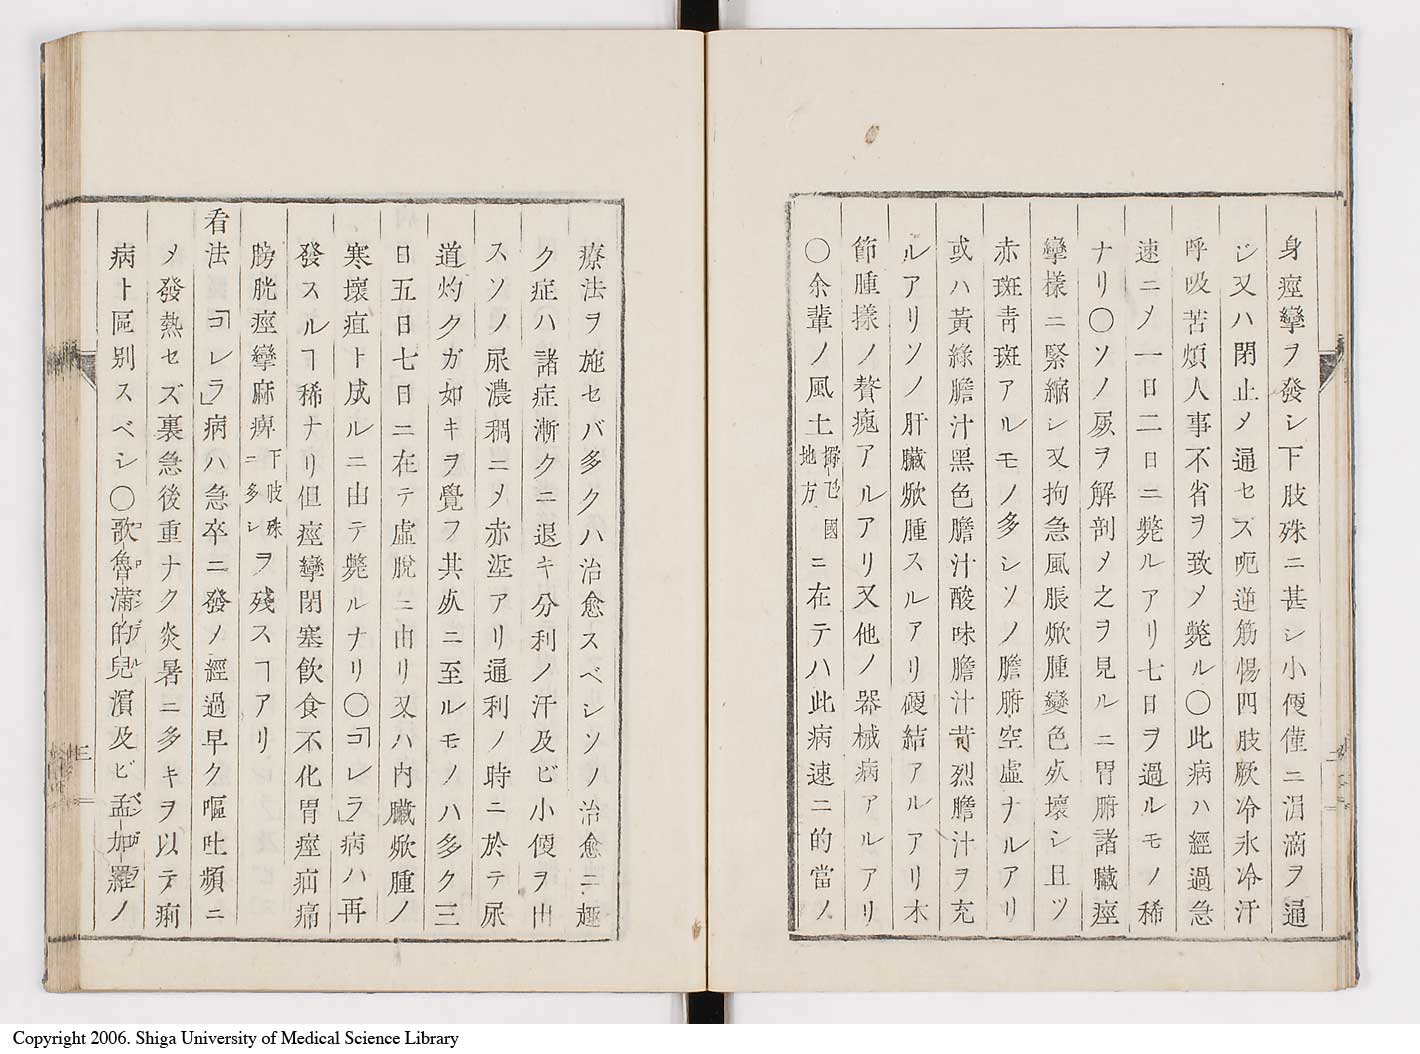 身痙攣ヲ發シ下肢殊ニ甚シ小便僅ニ涓滴ヲ通
ジ又ハ閉止メ通セス呃逆筋惕四肢厥冷氷冷汗
呼吸苦煩人事不省ヲ致メ斃ル〇此病ハ經過急
速ニメ一日二日ニ斃ルアリ七日ヲ過ルモノ稀
ナリ〇ソノ屍ヲ解剖メ之ヲ見ルニ胃腑諸臟痙
攣樣ニ緊縮シ又拘急風脹焮腫變色敗壞シ且ツ
赤斑靑斑アルモノ多シソノ膽腑空虛ナルアリ
或ハ黃綠膽汁黑色膽汁酸味膽汁苛烈膽汁ヲ充
ルアリソノ肝臟焮腫スルアリ硬結アルアリ木
節腫樣ノ贅瘣アルアリ又他ノ器械病アルアリ
〇余輩ノ風土地方國ニ在テハ此病速ニ的當ノ
療法ヲ施セバ多クハ治愈スベシソノ治愈ニ趣
ク症ハ諸症漸クニ退キ分利ノ汗及ビ小便ヲ出
スソノ尿濃稠ニメ赤埿アリ通利ノ時ニ於テ尿
道灼クガ如キヲ覺フ其敗ニ至ルモノハ多ク三
日五日七日ニ在テ虛脫ニ由リ又ハ內臟焮腫ノ
寒壞疽ト成ルニ由テ斃ルナリ〇「コレラ」病ハ再
發スルヿ稀ナリ但痙攣閉塞飮食不化胃痙疝痛
膀胱痙攣麻痺下肢殊ニ多シヲ殘スヿアリ
看法「コレラ」病ハ急卒ニ發ノ經過早ク嘔吐頻ニ
メ發熱セズ裏急後重ナク炎暑ニ多キヲ以テ痢
病ト區別スベシ〇歌魯滿的兒濱及ビ孟加羅ノ
三
Copyright 2006. Shiga University of Medical Science Library